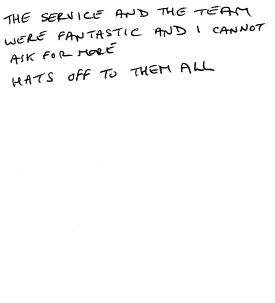 THE SERVICE AND THE TEAM
WERE FANTASTIC AND I CANNOT
ASK FOR MORE
HATS OFF TO THEM ALL